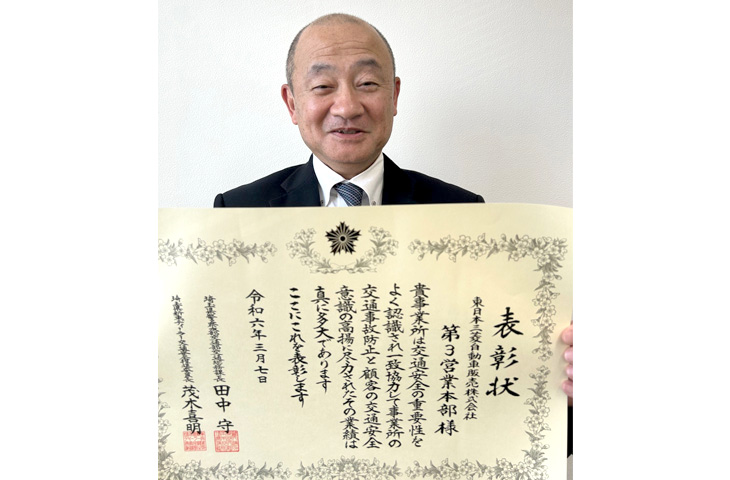 表彰状
東日本三菱自動車販売株式会社
第3営業本部様
貴事業所は交通安全の重要性を
よく認識され一致協力して事業所の
交通事故防止と顧客の交通安全
意識の高揚に尽力されたその業績は
真に多大であります
ここにこれを表彰します
令和六年三月七日
田中守
茂木喜明